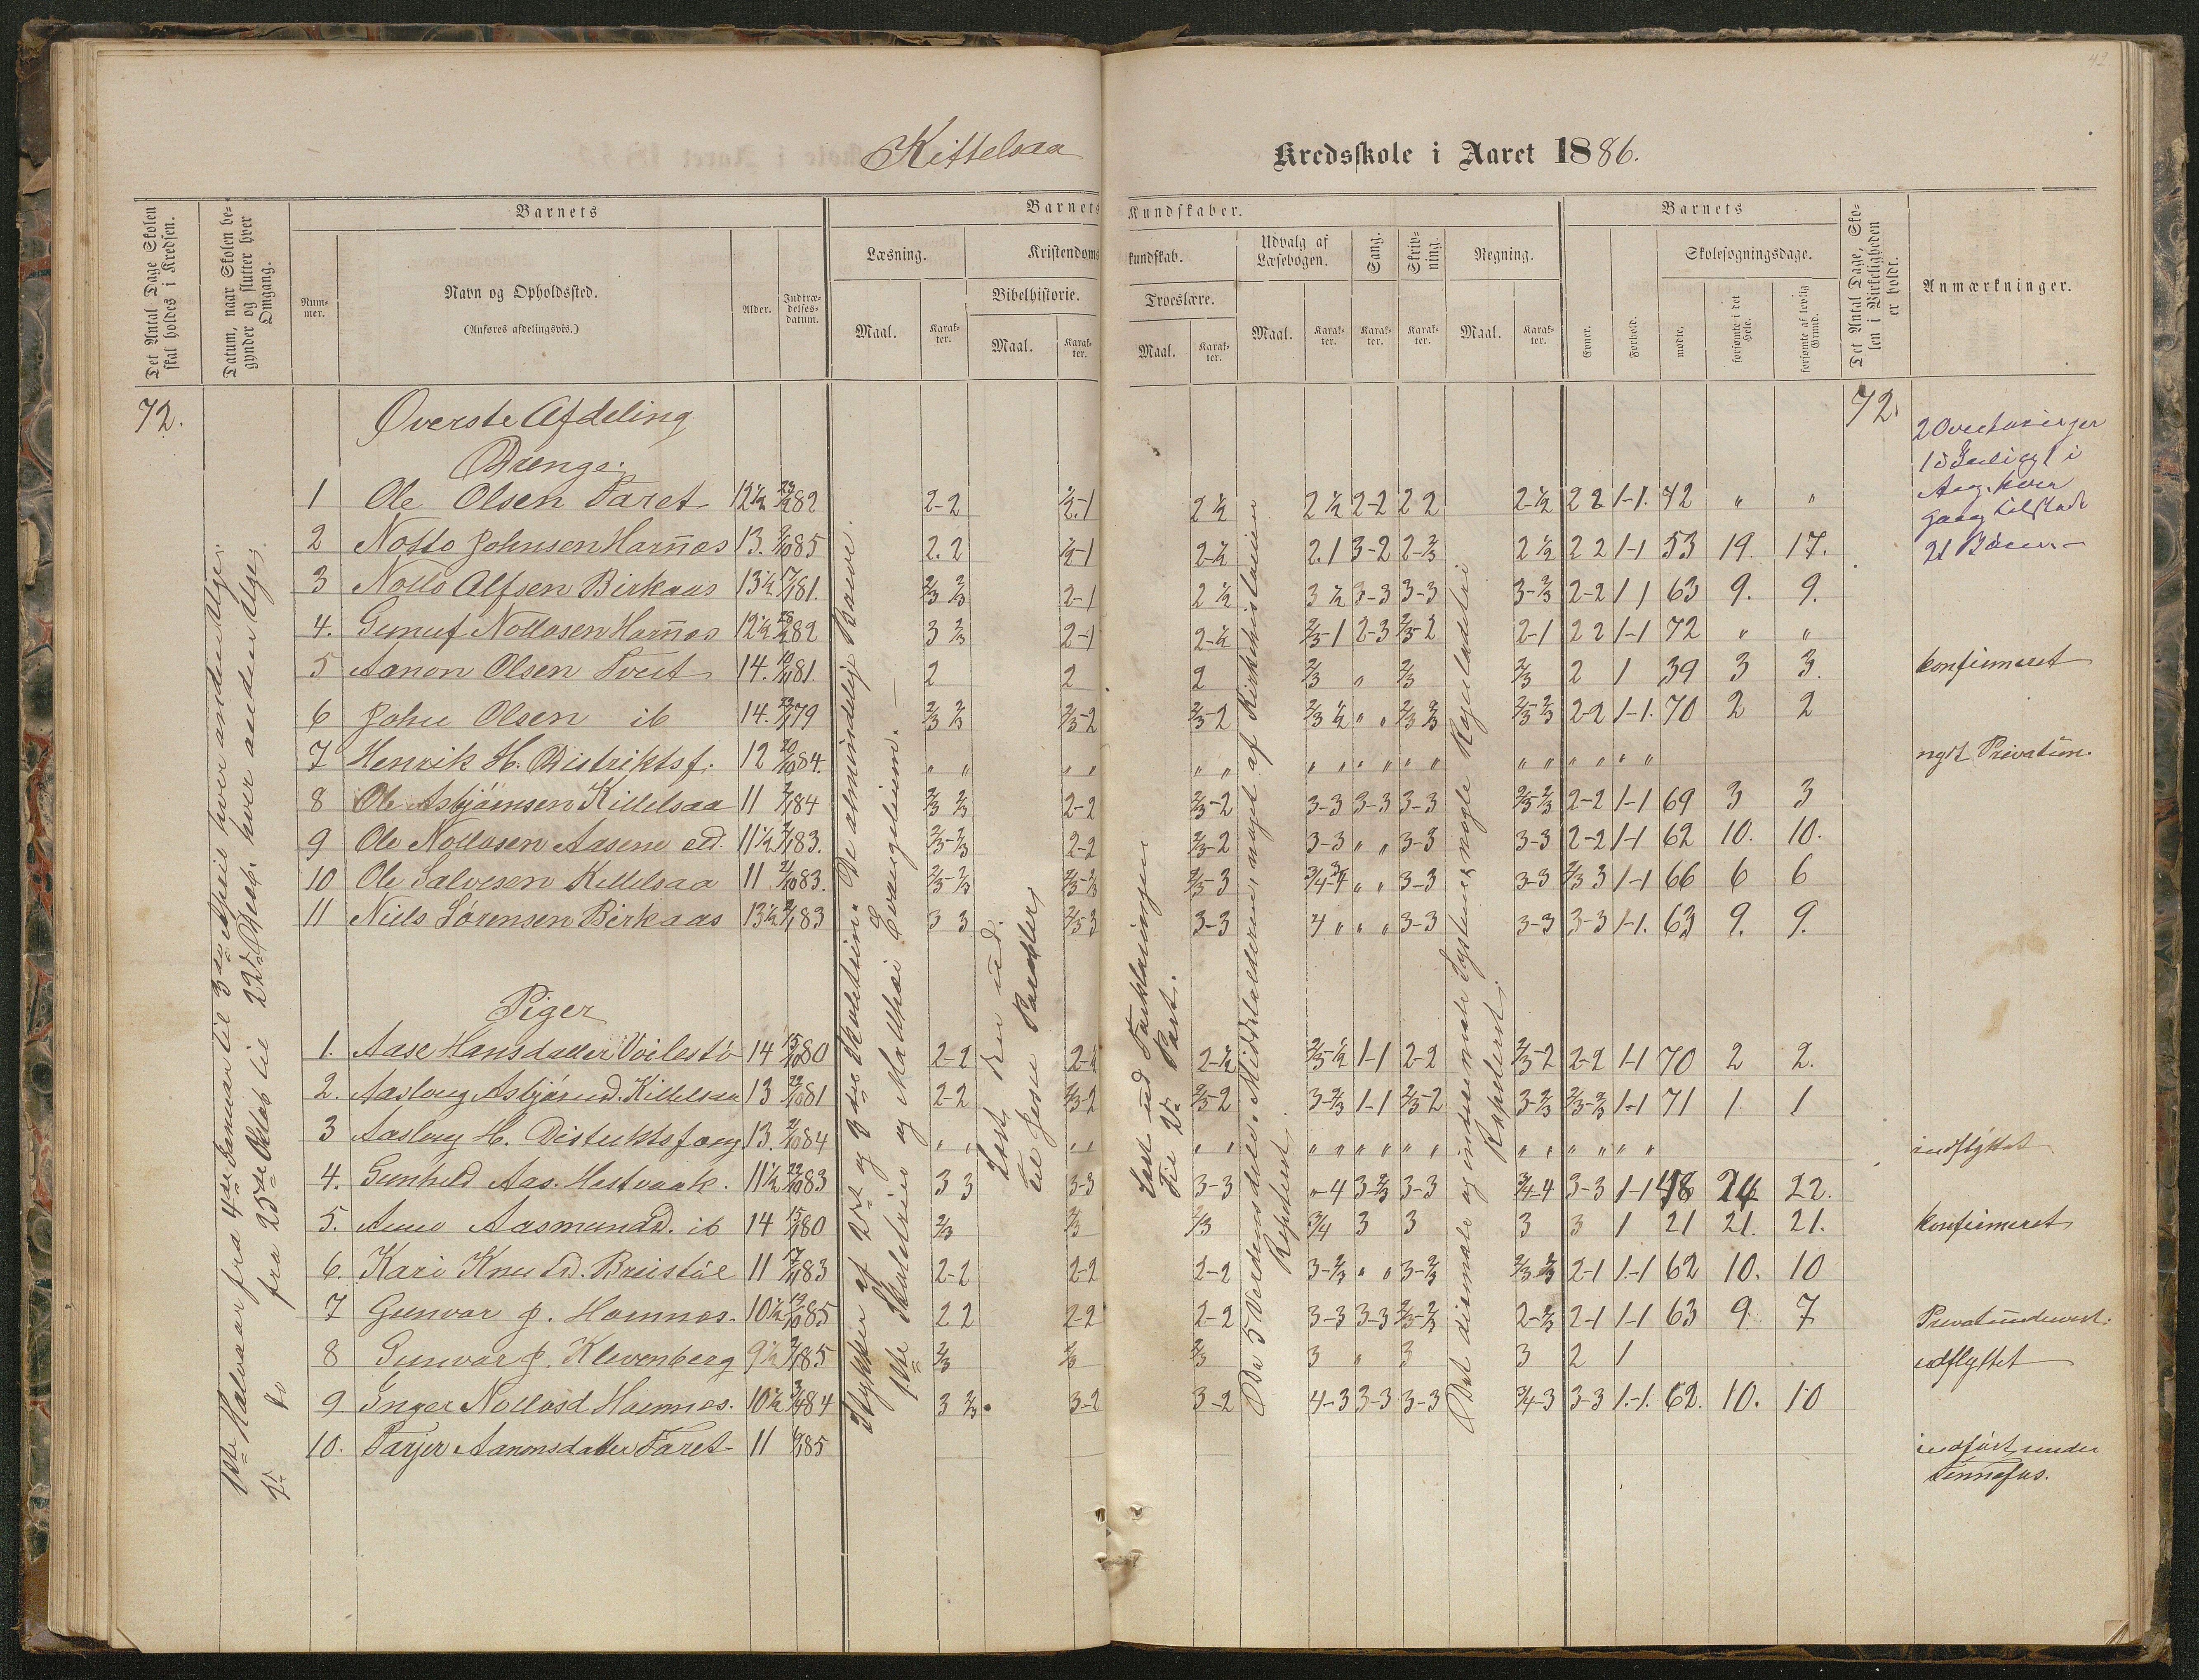 42
Kittelsaa Kredsskole i Aaret 1886.
Det Antal Dage Skolen skal holdes i Kredsen.
Datum, naar Skolen begynder og slutter hver Omgang.
Barnets
Nummer.
Navn og Opholdssted.
(Anføres afdelingsvis.)
Alder.
Indtrædelsesdatum.
Barnets Kundskaber.
Læsning.
Maal.
Karakter.
Kristendomskundskab.
Bibelhistorie.
Maal.
Karakter.
Troeslære.
Maal.
Karakter.
Udvalg af Læsebogen.
Maal.
Karakter.
Sang.
Karakter.
Skrivning.
Karakter.
Regning.
Maal.
Karakter.
Barnets
Evner.
Forhold.
Skolesøgningsdage.
mødte.
forsømte i det Hele.
forsømte af lovlig Grund.
Det Antal Dage, Skolen i Virkeligheden er holdt.
Anmærkninger.
72.
72.
Øverste Afdeling
Drenge.
1 Ole Olsen Faret 12½ 82 2-2 2 ½ 2 ½ 2-2 2 2 2-½ 2 2 1-1. 72 " "
2 Notto Johnsen Harnæs 13. 85 2. 2 2-½ 2.1 3-2 2-2/3 2 ½ 2 2 1-1 53 19. 17.
3 Notto Alfsen Birkaas 13½ 81. 2/3 2/3 2-1 2 ½ 3 ½ 3-3 3-3 3-2/3 2-2 1 1 63 9. 9.
4. Gunuf Nottosen Harnæs 12½ 82 3 2/3 2-1 2-½ 2/3-1 2-3 2/3-2 2-1 2 2 1-1 72 " "
5 Aanon Olsen Tveit 14. 81. 2 2 2 2/3 " 2/3 2/3 2 1 39 3 3. konfirmeret
6 John Olsen ib 14. 79 2/3 2/3 2/3-2 2/3-2 2/3 ½ " " 2/3 2/3 2/3-2/3 2-2 1-1. 70 2 2
7 Henrik H. Distriktsf. 12 84. " " " " " " " " " " " " " " " " " "
8 Ole Asbjörnsen Kittelsaa 11 84 2/3 2/3 2-2 2/3-2 3-3 3-3 3-3 2/3-2/3 2-2 1-1 69 3 3
9 Ole Nottosen Aasene 11½ 83. 2/3-2/3 2-2 2/3-2 3-3 " " 3-3 3-3 2-2 1-1 62 10. 10.
10 Ole Salvesen Kittelsaa 11 83. 2/3-2/3 2/3-2/3 2/3-3 3/4-3/4 " " 3-3 3-3 2/3 3 1-1 66 6 6
11 Niels Sørensen Birkaas 13½ 83 3 3 2/3 3 3-3 4 " " " 3-3 3-3 3-3 1-1. 63 9. 9.
Piger
1. Aase Hansdatter 14 80 2-2 2-½ 2/3-½ 1-1 2-2 2/3-2 2-2 1-1 70 2 2.
2. Aaslaug Asbjørnsd. Kittelsaa 13 81 2-2 2/3-2 2/3-2 3-2/3 1-1 2/3-2 3-2/3 2/3-2/3 1-1 71 1 1
3 Aaslaug H. Distriktsfoug 13. 84 " " " " " " " " " " " " " " " " " " indflyttet
4. Gunhild Aas. Hestvaak. 11½ 83 3 3 3-3 3-3 "-4 3-2/3 3-3 3/4-4 3-3 1-1 48 24 22.
5. Anne Aasmundsd. ib 14 80 2/3 2/3 2/3 3/4 3 3 3 3 1 21 21. 21. konfirmeret
6. Kari Knutsd. Breistöl 11 83 2-2 2-2 2-2 3-2/3 " " 3-2/3 2/3 2/3 2-1 1-1 62 10. 10
7 Gunvor J. Hamnæs. 10½ 85 2 2 2-2 2-2 3-3 3-3 2/3-2/3 2-2/3 2-1 1-1 63 9. 7 Privatundervist.
8 Gunvor J. Klevenberg 9½ 85 2/3 2/3 2/3 3 " 3 3 2 1 udflyttet
9. Inger Nottosd Hamnæs. 10½ 84 3 2/3. 3-2 3-2 4-3 3-3 3-3 3/4-3 3-3 1-1. 62. 10. 10
10. Tarjer Aanonsdatter Faret 11 85 indført under
Tennefos.
1ste Halvaar fra 4de Januar til 3die April hver anden Uge.
2det do fra 25de Oktob til 22de Decb. hver anden Uge.
Stykker af 2det og 3die Skoletrin. De almindelige Bønner.
1ste Skoletrin og Matthæi Evangelium.
Læst Bien ud.
til Jesu Parabler
Læst ud Forklaringen
til 2den Part.
Da 5 Verdensdele. Middelalderen, noget af Kirkehistorien
Repeteret.
Det diemale og intuemale Systemer nogle Regeladetri
Repeteret.
Aug. hver
gang tilstede
21 Børn